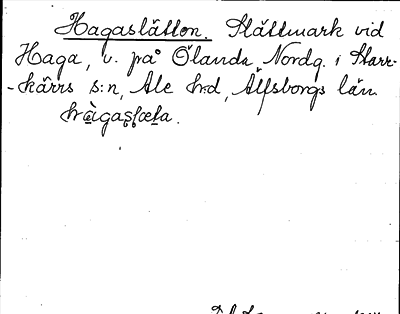 Hagaslätten. Slättmark vid
Haga, v. på Ölanda Nordg. i Starr-
-kärrs s:n, Ale h:d, Älfsborgs län.